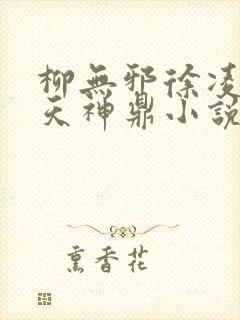 柳無邪徐凌
天神鼎小說
熏香花